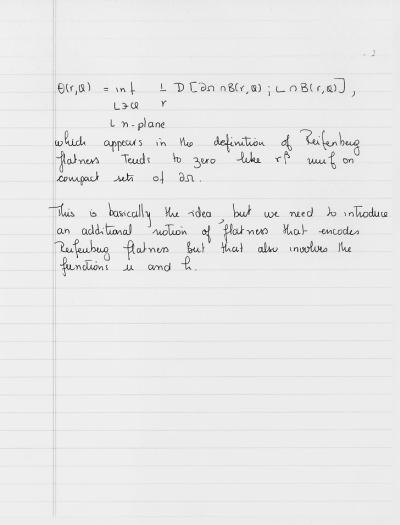 θ(r,Q) = inf 1/r D[∂Ω∩B(r,Q); L∩B(r,Q)],
L∋Q
L n-plane
which appears in the definition of Reifenberg
flatness tends to zero like r^β unif on
compact sets of ∂Ω.
This is basically the idea, but we need to introduce
an additional notion of flatness that encodes
Reifenberg flatness but that also involves the
functions u and h.